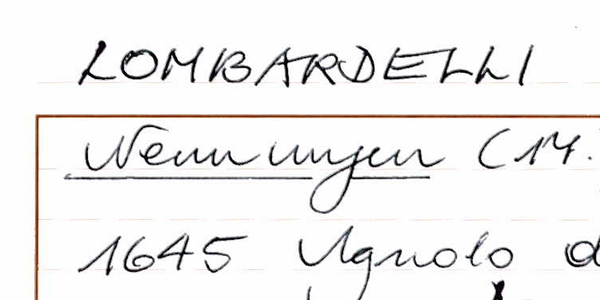 LOMBARDELLI
Nenningen (14.
1645 Agnolo d